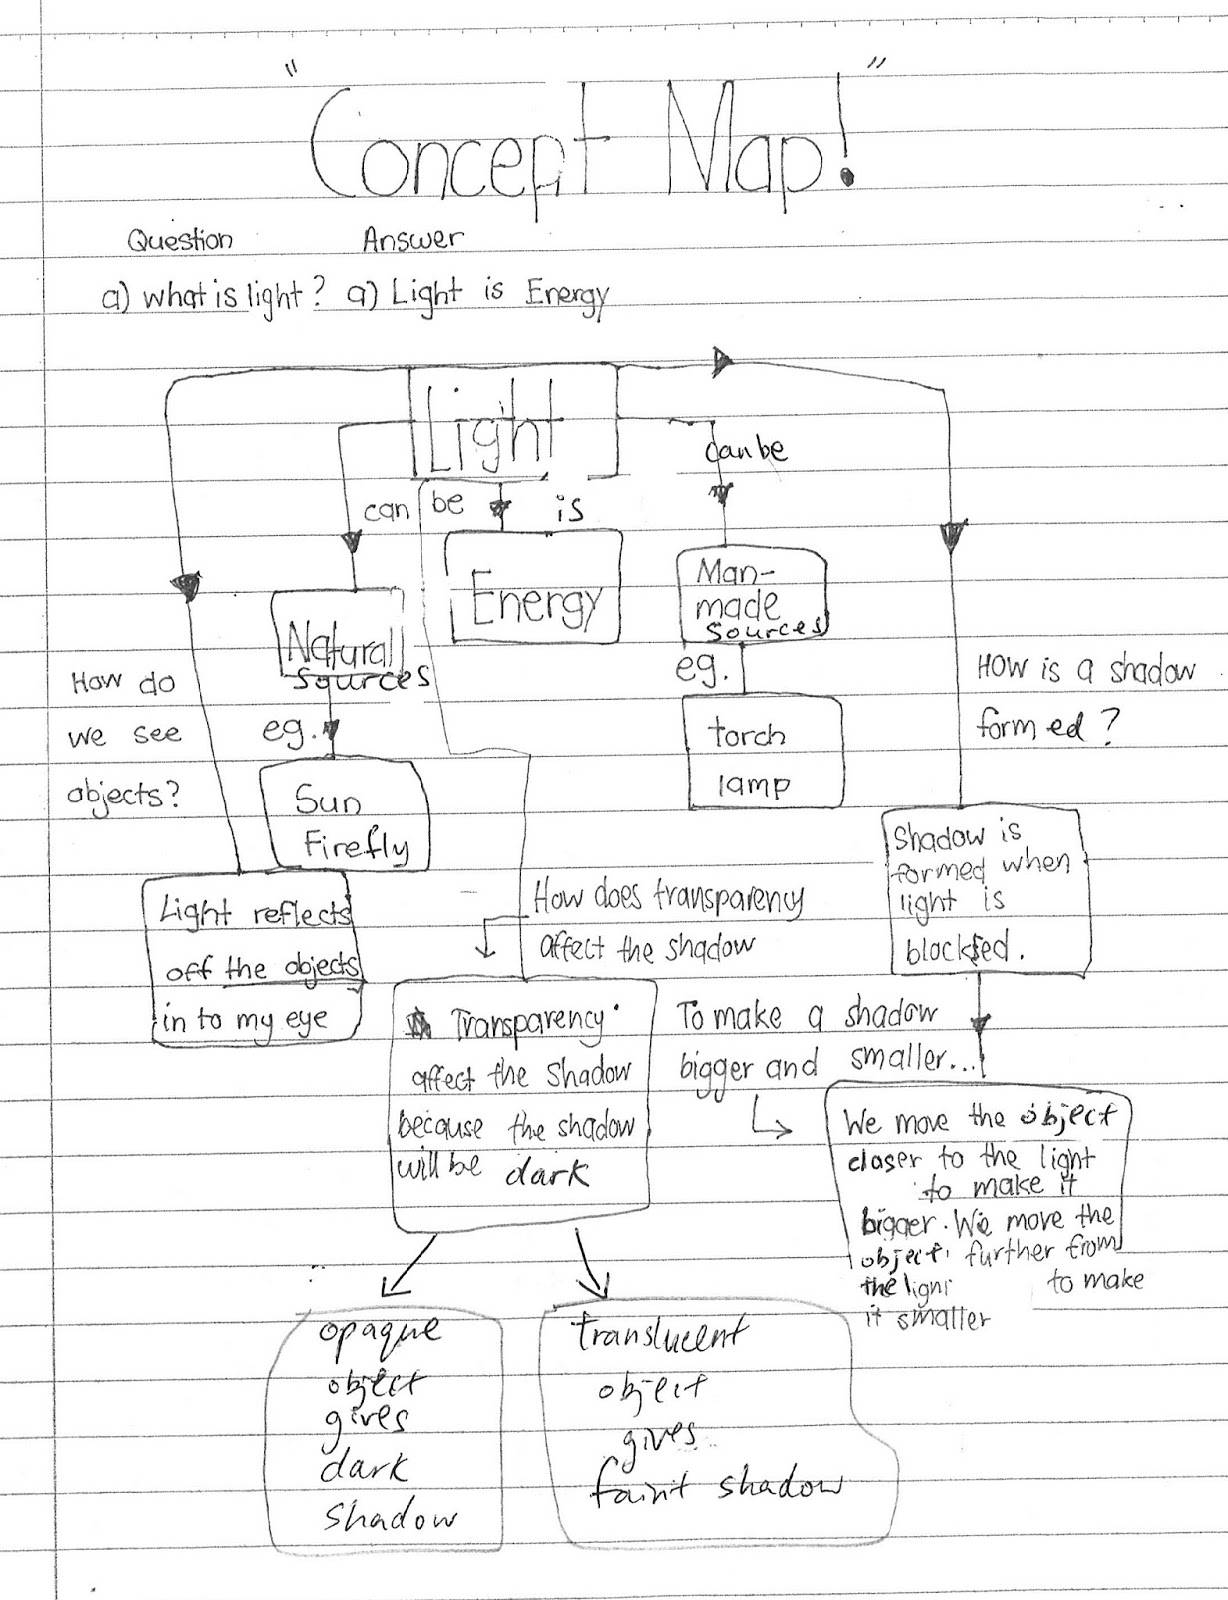 "Concept Map!"
Question Answer
a) what is light? a) Light is Energy
Light
can be
can be
is
Energy
Natural
sources
Man-
made
sources
eg.
eg.
How do
we see
objects?
Sun
Firefly
torch
lamp
How is a shadow
formed?
Light reflects
off the objects
in to my eye
How does transparency
affect the shadow
Shadow is
formed when
light is
blocked.
Transparency
affect the shadow
because the shadow
will be dark
To make a shadow
bigger and smaller...
We move the object
closer to the light
to make it
bigger. We move the
object further from
the light to make
it smaller
opaque
object
gives
dark
shadow
translucent
object
gives
faint shadow